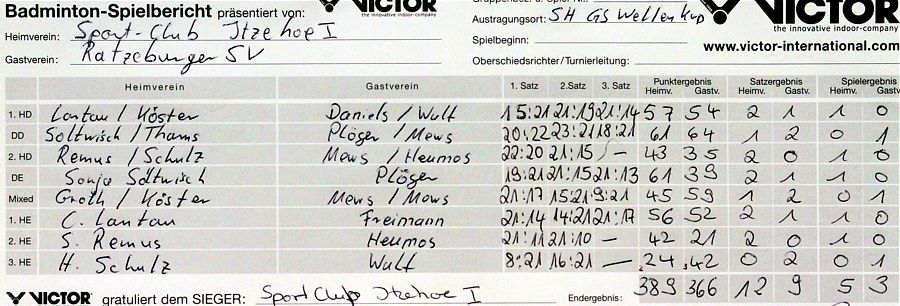 Badminton-Spielbericht präsentiert von: VICTOR
the innovative indoor-company
Heimverein: Sport-Club Itzehoe I
Gastverein: Ratzeburger SV
Austragungsort: SH GS Wellenkup
Spielbeginn:
Oberschiedsrichter/Turnierleitung:
VICTOR
the innovative indoor-company
www.victor-international.com
Heimverein Gastverein 1. Satz 2.Satz 3. Satz Punktergebnis Heimv. Gastv. Satzergebnis Heimv. Gastv. Spielergebnis Heimv. Gastv.
1. HD Lantau / Köster Daniels / Wulf 15:21 21:19 21:14 57 54 2 1 1 0
DD Soltwisch / Thams Plöger / Mews 20:22 23:21 18:21 61 64 1 2 0 1
2. HD Remus / Schulz Mews / Heumos 22:20 21:15 / — 43 35 2 0 1 0
DE Sonja Soltwisch Plöger 19:21 21:15 21:13 61 39 2 1 1 0
Mixed Groth / Köster Mews / Mews 21:17 15:21 9:21 45 59 1 2 0 1
1. HE C. Lantau Freimann 21:14 14:21 21:17 56 52 2 1 1 0
2. HE S. Remus Heumos 21:11 21:10 — 42 21 2 0 1 0
3. HE H. Schulz Wulf 8:21 16:21 — 24 42 0 2 0 1
VICTOR gratuliert dem SIEGER: Sport Club Itzehoe I Endergebnis: 389 366 12 9 5 3